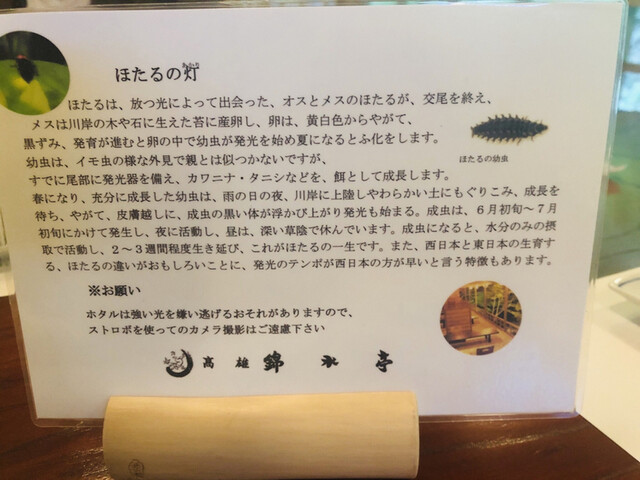 ほたるの灯
ほたるは、放つ光によって出会った、オスとメスのほたるが、交尾を終え、
メスは川岸の木や石に生えた苔に産卵し、卵は、黄白色からやがて、
黒ずみ、発育が進むと卵の中で幼虫が発光を始め夏になるとふ化をします。
幼虫は、イモ虫の様な外見で親とは似つかないですが、
すでに尾部に発光器を備え、カワニナ・タニシなどを、餌として成長します。
ほたるの幼虫
春になり、充分に成長した幼虫は、雨の日の夜、川岸に上陸しやわらかい土にもぐりこみ、成長を
待ち、やがて、皮膚越しに、成虫の黒い体が浮かび上がり発光も始まる。成虫は、６月初旬～７月
初旬にかけて発生し、夜に活動し、昼は、深い草陰で休んでいます。成虫になると、水分のみの摂
取で活動し、２～３週間程度生き延び、これがほたるの一生です。また、西日本と東日本の生育す
る、ほたるの違いがおもしろいことに、発光のテンポが西日本の方が早いと言う特徴もあります。
※お願い
ホタルは強い光を嫌い逃げるおそれがありますので、
ストロボを使ってのカメラ撮影はご遠慮下さい
高雄 錦水亭